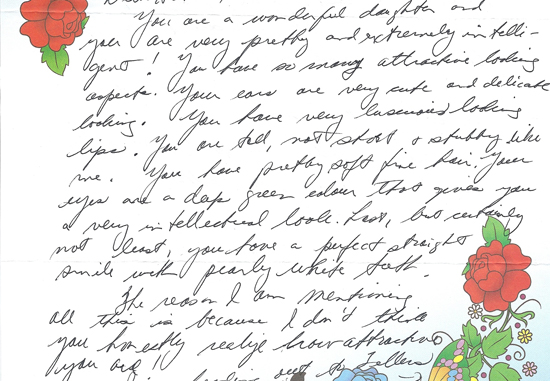 You are a wonderful daughter and
you are very pretty and extremely intelli-
gent! You have so many attractive looking
aspects. Your ears are very cute and delicate
looking. You have very luscious looking
lips. You are tall, not short & stubby like
me. You have pretty soft fine hair. Your
eyes are a deep green colour that gives you
a very intellectual look. Last, but certainly
not least, you have a perfect straight
smile with pearly white teeth.
The reason I am mentioning
all this is because I don't think
you honestly realize how attractive
you are!